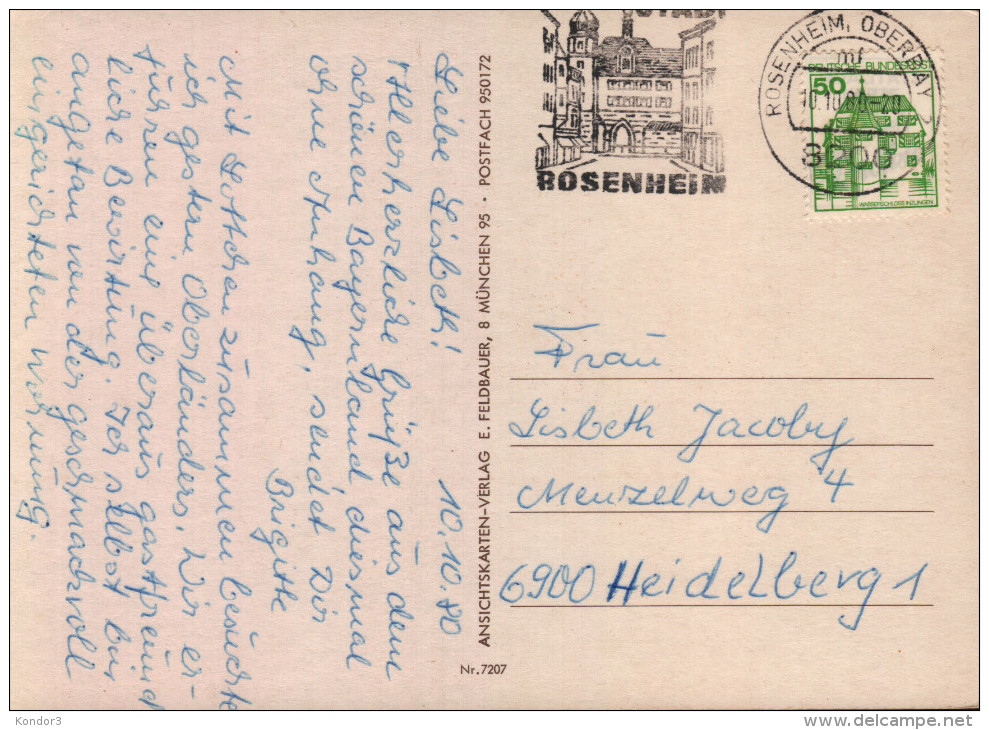 10.10.80
Liebe Lisbeth!
Allerherzliche Grüße aus dem
schönen Bayernland, diesmal
ohne Anhang, sendet Dir
Brigitte
Mit Lottchen zusammen besuchte
ich gestern Oberländers. Wir er-
fuhren eine überaus gastfreund
liche Bewirtung. Ich selbst bin
angetan von der geschmackvoll
eingerichteten Wohnung.
ANSICHTSKARTEN-VERLAG E. FELDBAUER, 8 MÜNCHEN 95 · POSTFACH 950172
Nr. 7207
STADT
ROSENHEIM
ROSENHEIM, OBERBAY 2
mf
10.10.80
8200
DEUTSCHE BUNDESPOST
50
WASSERSCHLOSS INZLINGEN
Frau
Lisbeth Jacoby
Menzelweg 4
6900 Heidelberg 1
Kondor3
delcampe.net